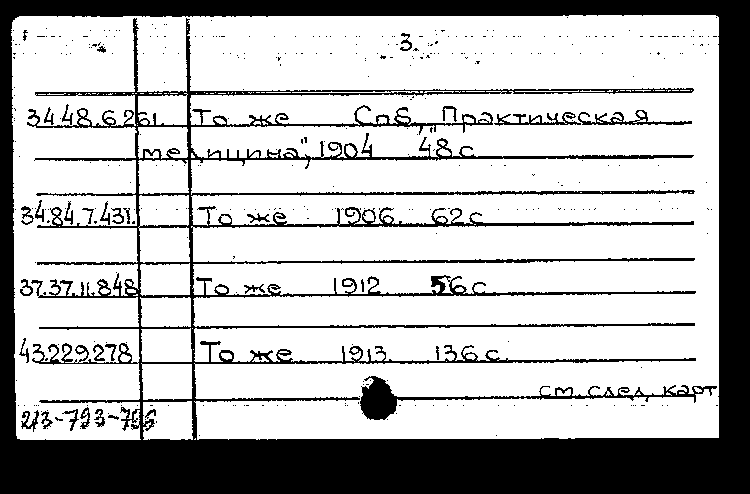 3.
34.48.6.261. То же Спб., "Практическая
медицина", 1904 48 с
34.84.7.431. То же 1906. 62 с
37.37.11.848 То же 1912 56 с.
43.229.278 То же 1913. 136 с.
см. след. карт
213-793-796